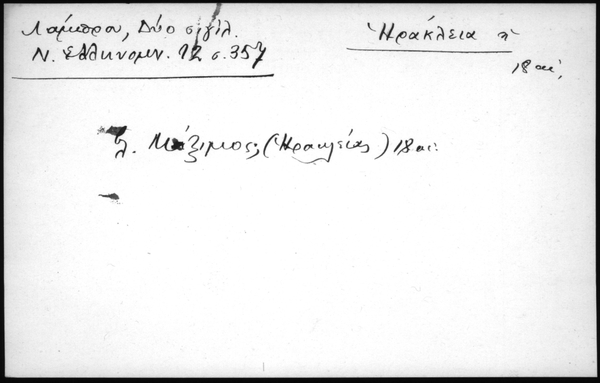 Λάμπρου, Δύο σιγίλ.
Ν. Ελληνομν. 12 σ. 357
Ἡράκλεια
18 αἰ.
λ. Μάξιμος (Ἡρακλείας) 18 αἰ.